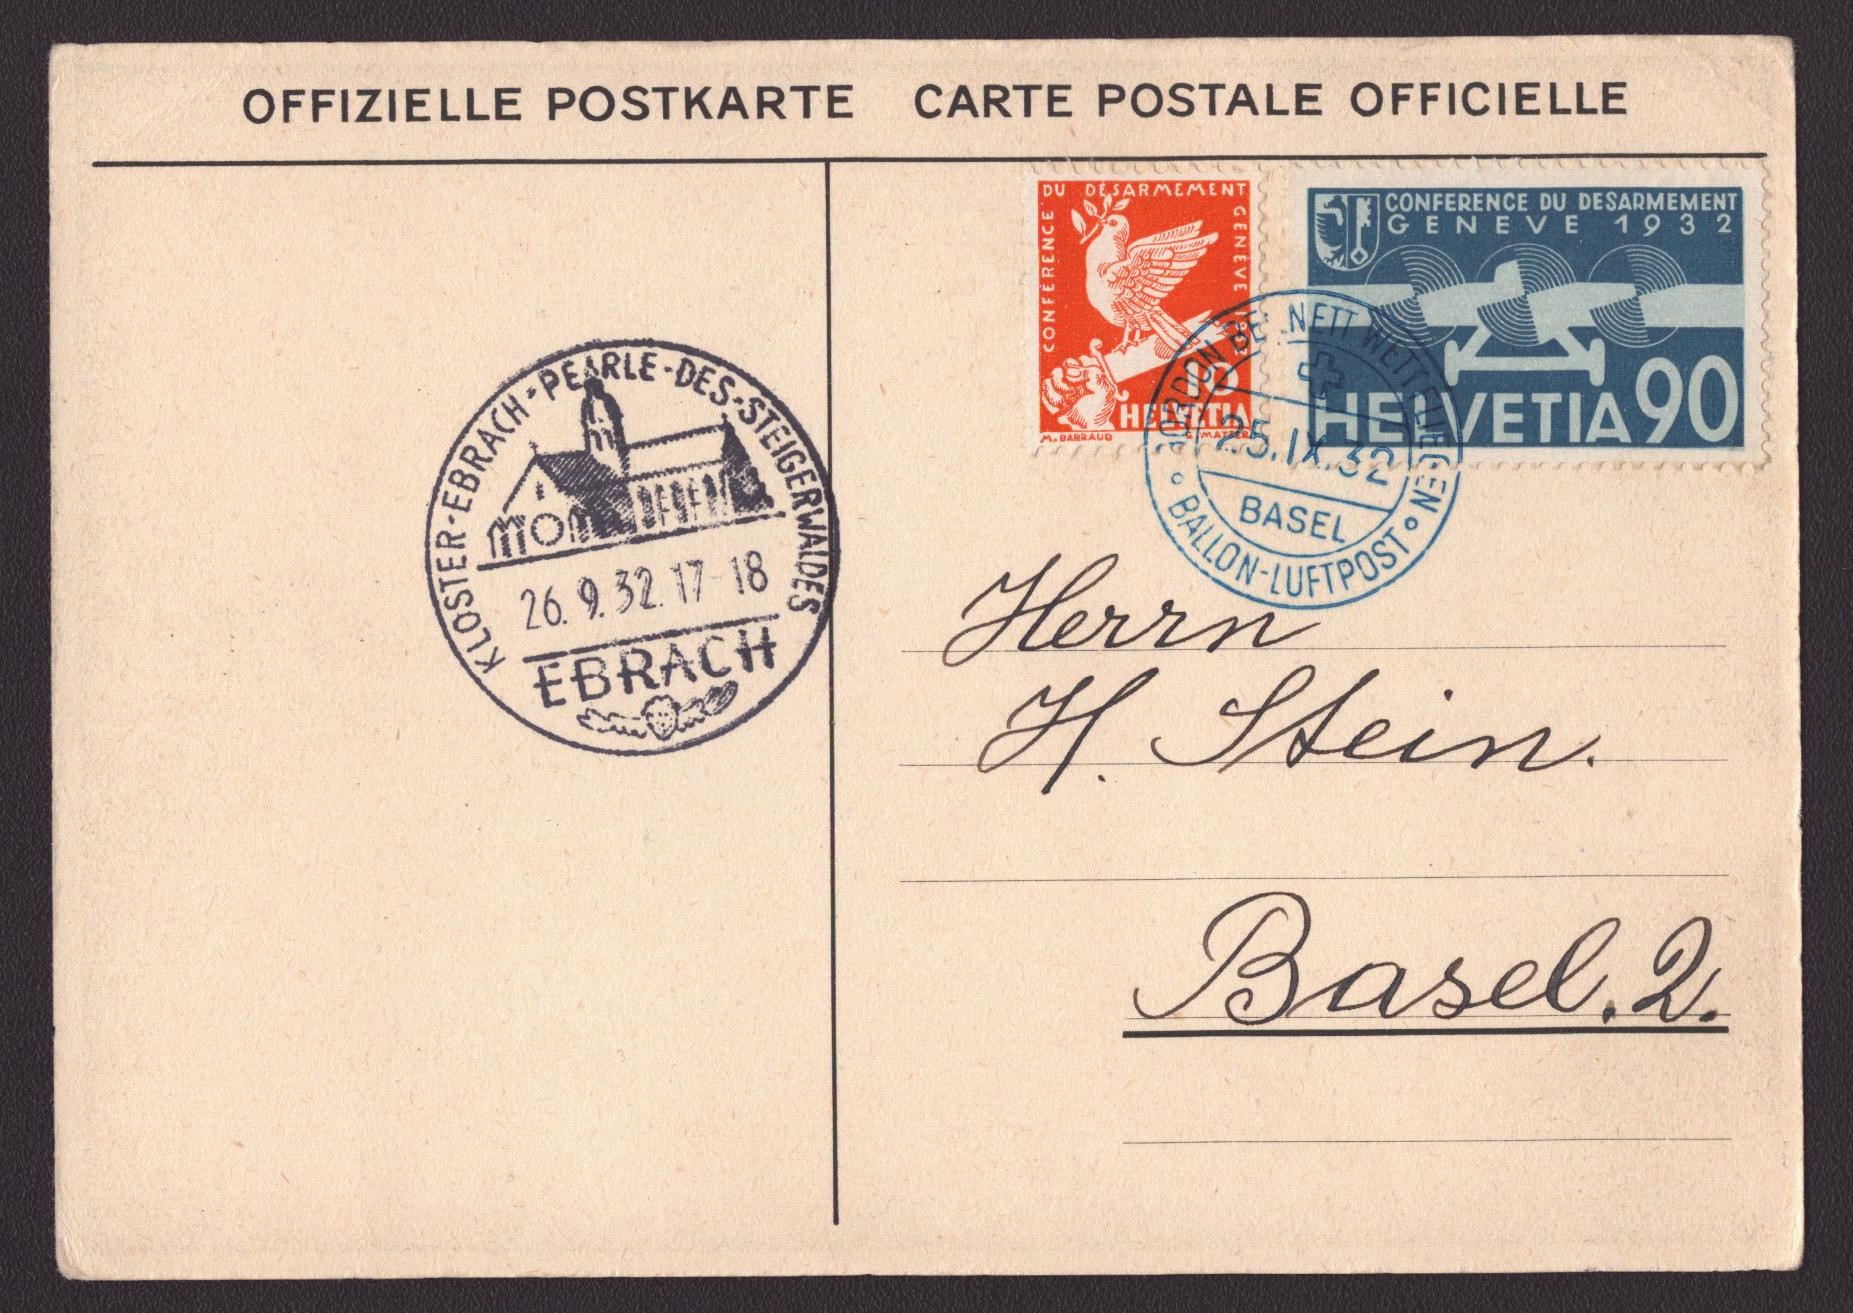 OFFIZIELLE POSTKARTE CARTE POSTALE OFFICIELLE
CONFÉRENCE DU DÉSARMEMENT GENÈVE 1932
HELVETIA
M. BARRAUD
CONFERENCE DU DESARMEMENT
GENEVE 1932
HELVETIA 90
GORDON BENNETT WETTFLIEGEN
25.IX.32
BASEL
BALLON-LUFTPOST
KLOSTER-EBRACH-PEARLE-DES-STEIGERWALDES
26.9.32.17-18
EBRACH
Herrn
H. Stein.
Basel. 2.